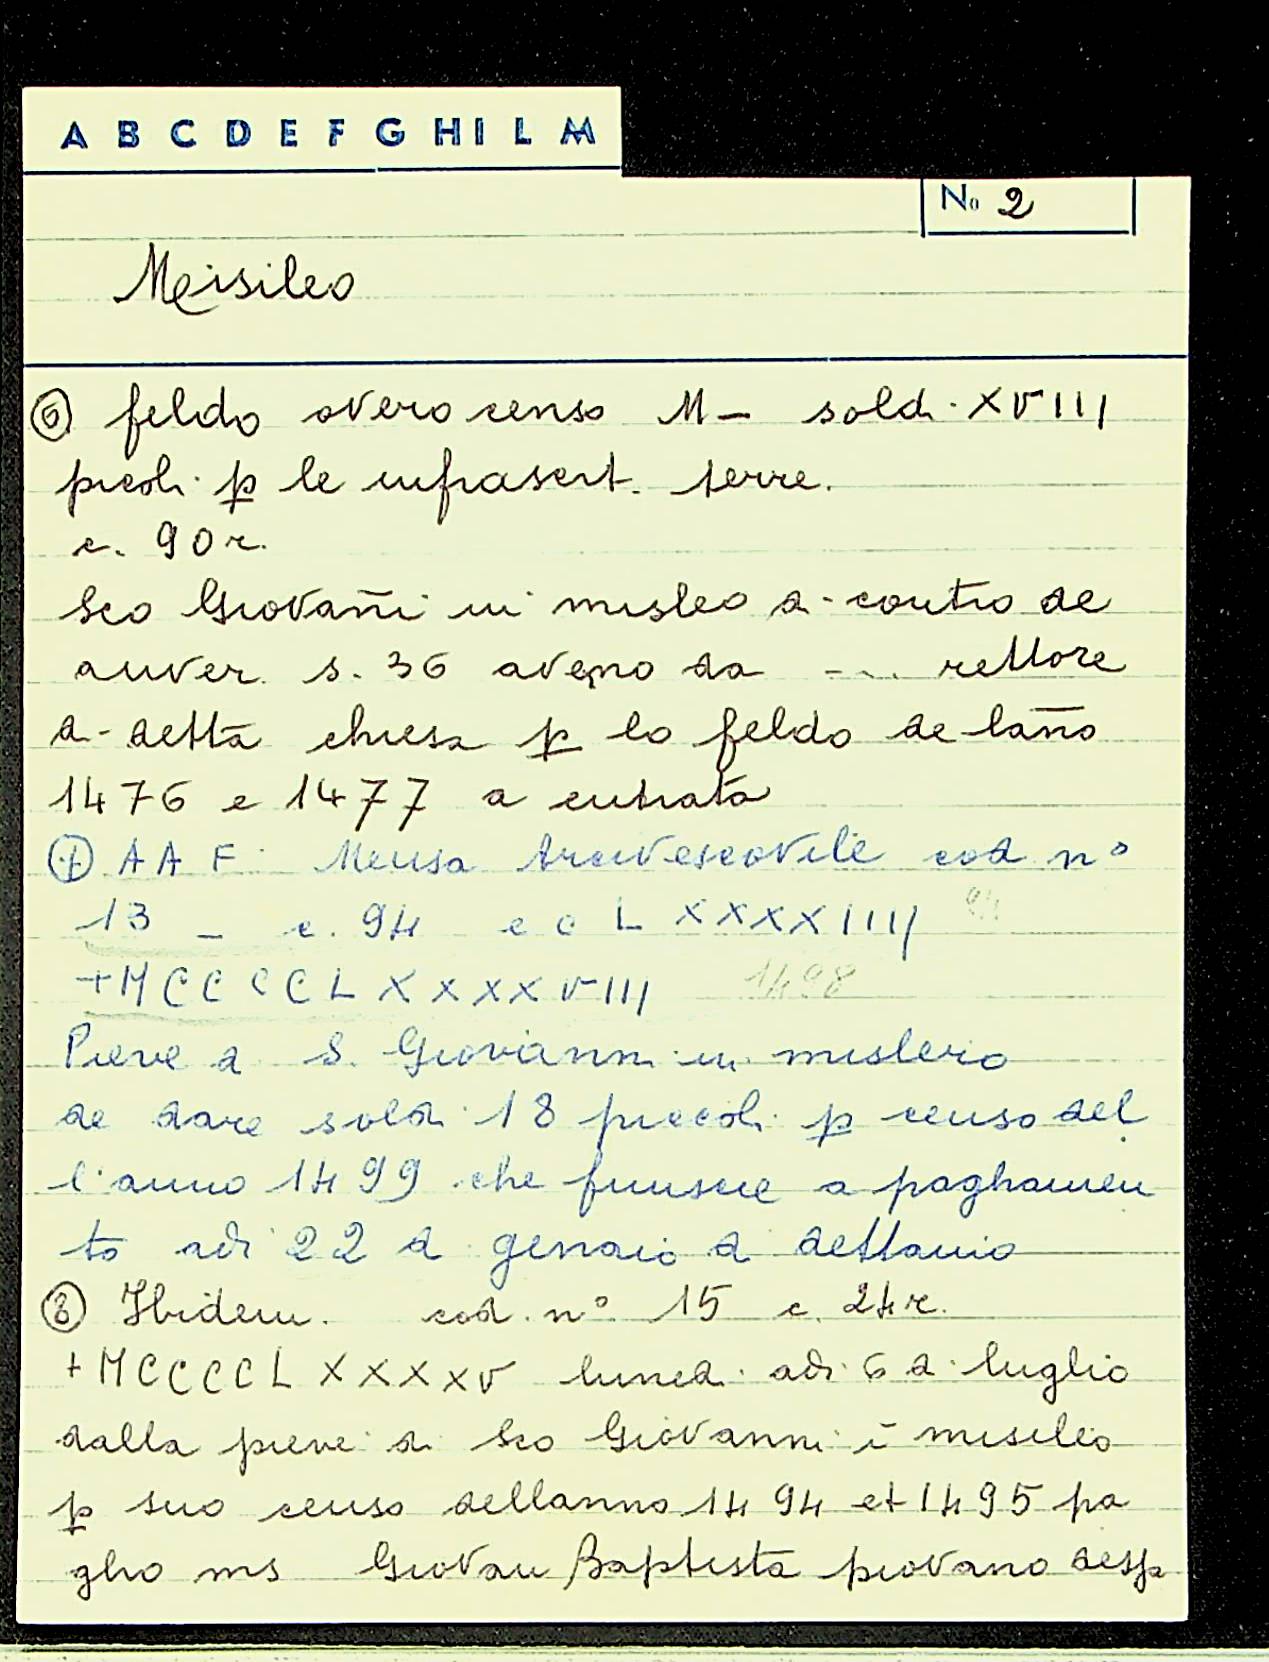 A B C D E F G H I L M
No 2
Meisileo
⑥ feldo overo censo M- sold. XVIII
picoli. p le infrascrt. terre.
c. 90 r.
Sco Giovañi in misleo d. contro de
auver. s. 36 aveno da -... rettore
d. detta chiesa p lo feldo de laño
1476 e 1477 a entrata
⑦ A A F. Mensa Arcivescovile cod n°
13 - c. 94 c c L XXXXIIII 94
+MCCCCLXXXXVIII 1498
Pieve d S. Giovanni in mislero
de dare soldi 18 piccoli p censo del
l'anno 1499 che funisce a paghamen
to adi 22 d gennaio d dettanno
⑧ Ibidem. cod. n° 15 c. 24 r.
+MCCCCLXXXXV luned. adi 6 d. luglio
dalla pieve di Sco Giovanni ī misileo
p suo censo dellanno 1494 et 1495 pa
gho ms Giovan Baptista piovano desp